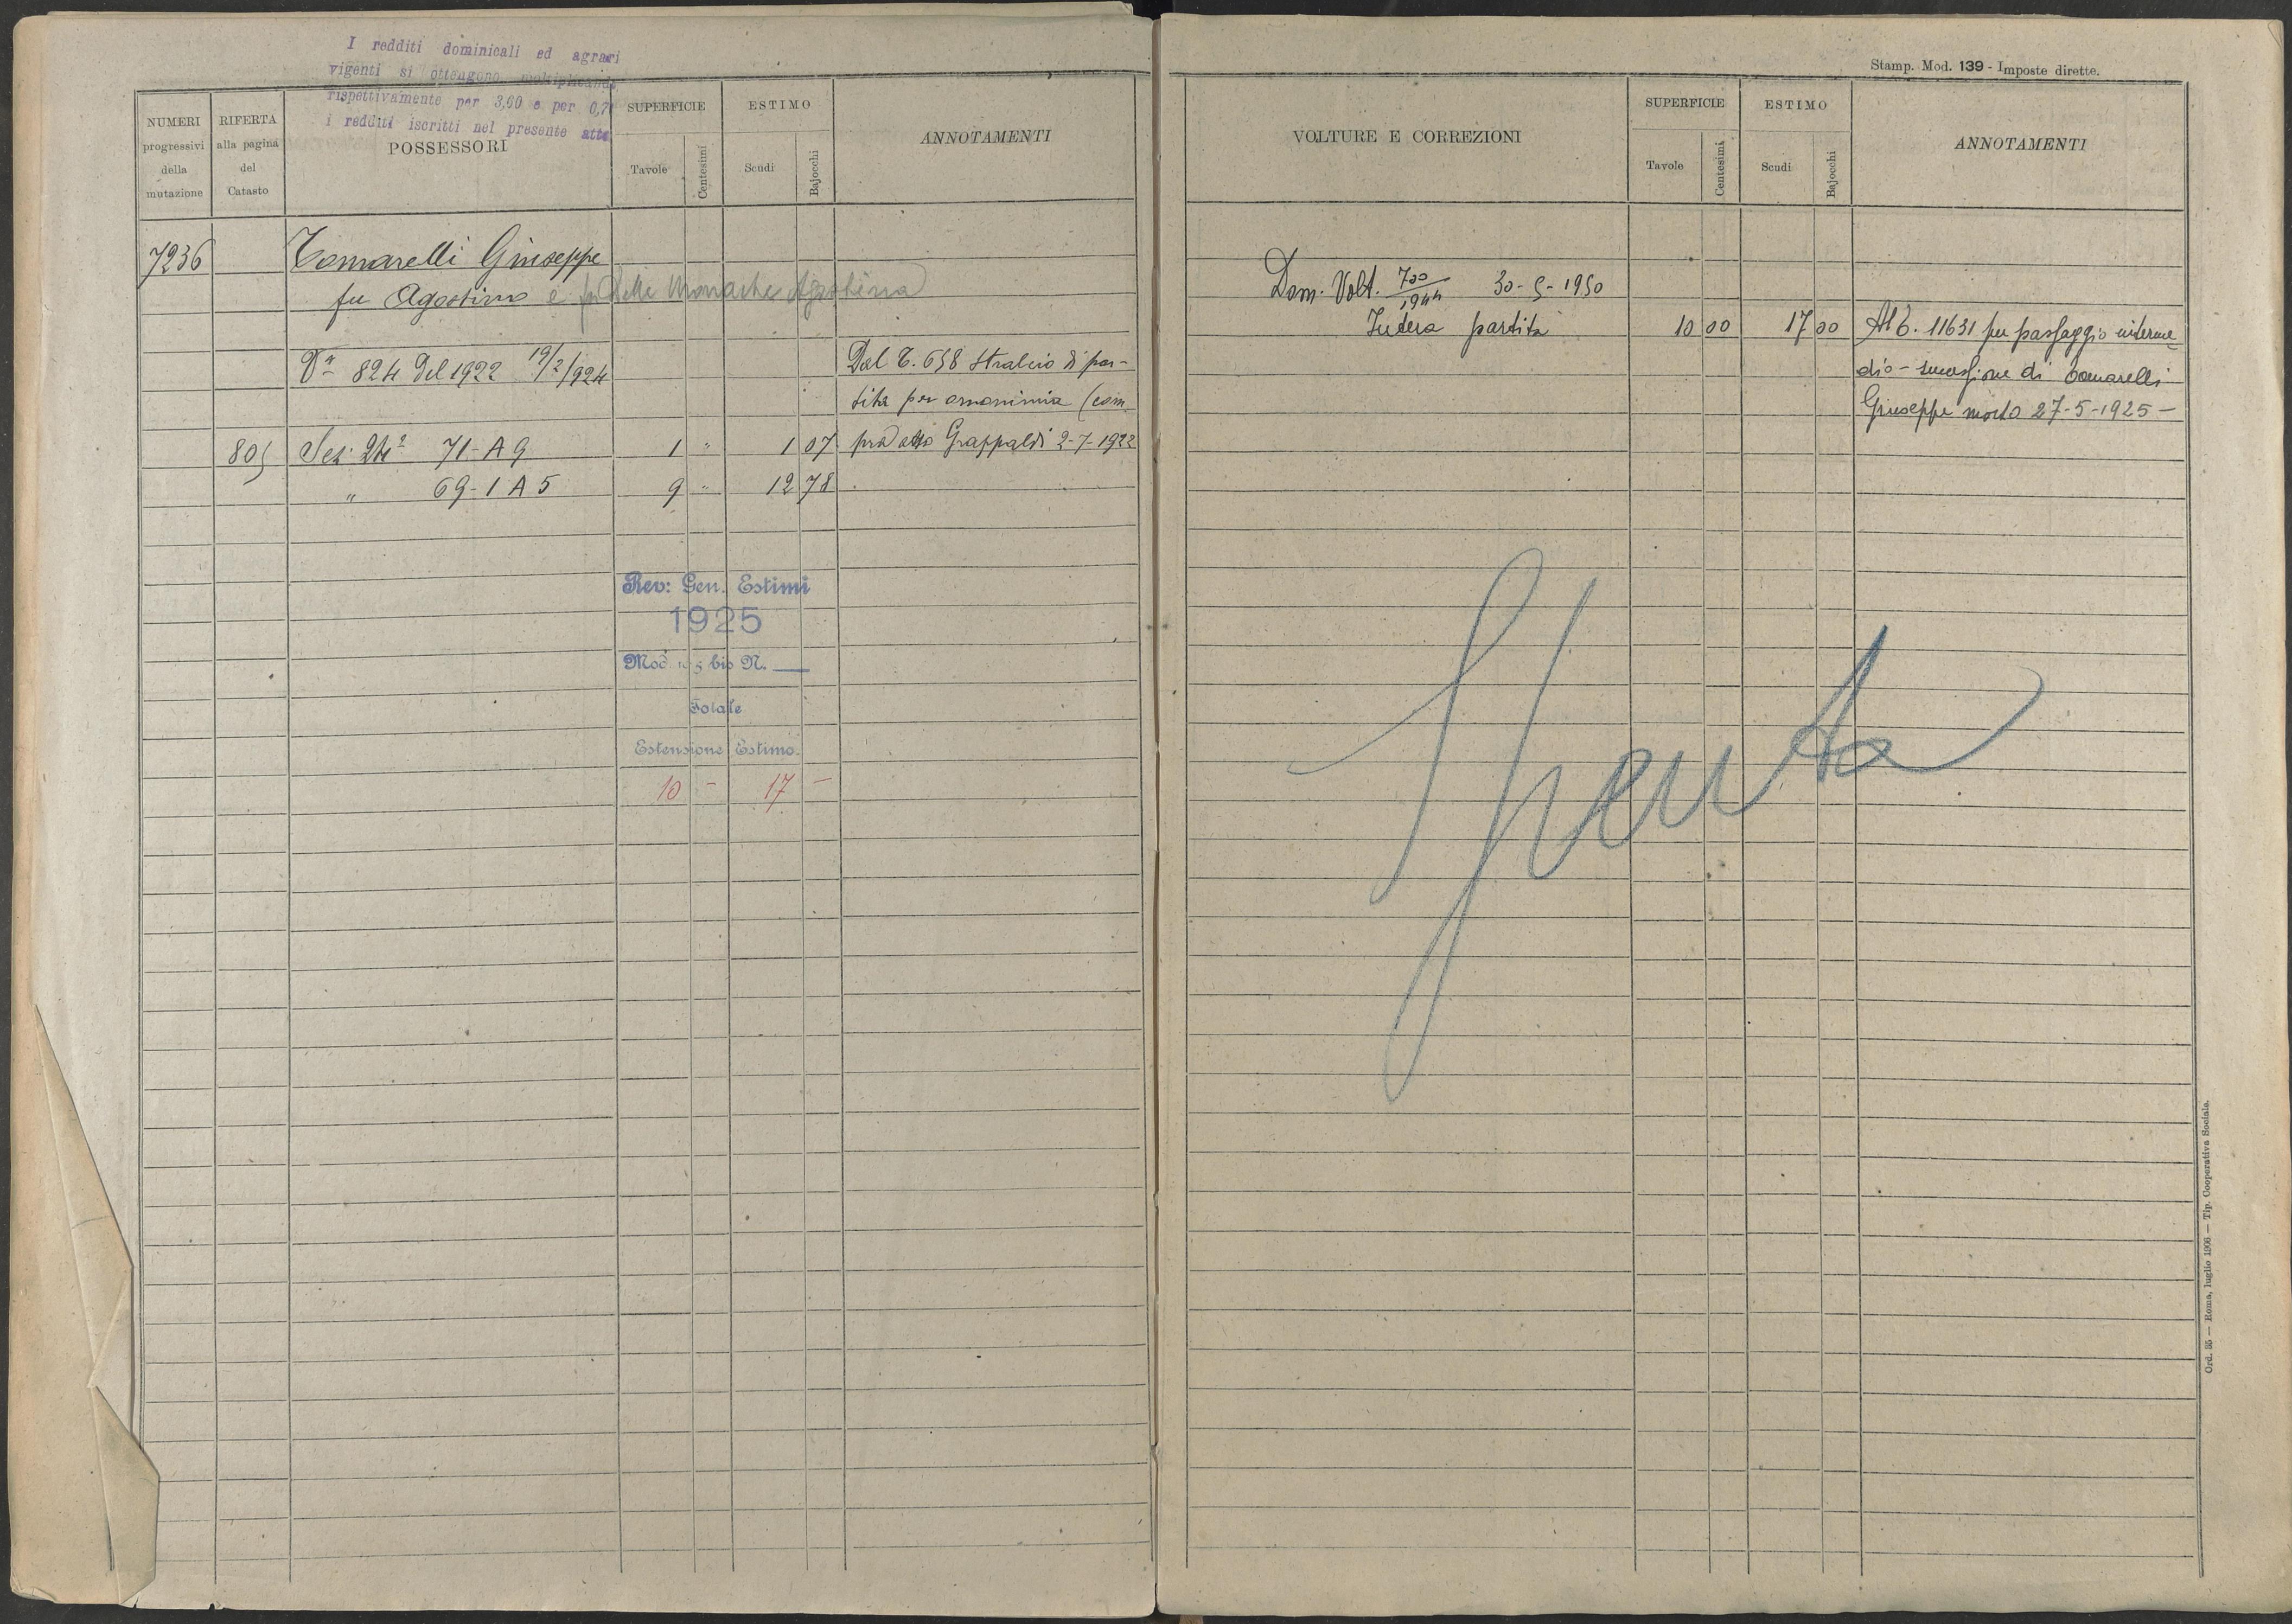 I redditi dominicali ed agrari
vigenti si ottengono moltiplicando
rispettivamente per 3,60 e per 0,7
i redditi iscritti nel presente atto
NUMERI
progressivi
della
mutazione
RIFERTA
alla pagina
del
Catasto
POSSESSORI
SUPERFICIE
Tavole
Centesimi
ESTIMO
Scudi
Bajocchi
ANNOTAMENTI
7236
Tomarelli Giuseppe
fu Agostino e fu Delle Monache Agostina
Va 824 del 1922 19/2/924
Dal T. 658 stralcio di par-
tita per omonimia (com.
pra atto Grappaldi 2-7-1922
805 Sez: 2a 71-A9 1 " 1 07
" 69-1A5 9 " 12 78
Rev: Gen. Estimi
1925
Mod. bis N.
Totale
Estensione Estimo.
10 - 17 -
Stamp. Mod. 139 - Imposte dirette.
VOLTURE E CORREZIONI
SUPERFICIE
Tavole
Centesimi
ESTIMO
Scudi
Bajocchi
ANNOTAMENTI
Dom. Volt. 700/1944 30-5-1950
Intera partita 10 00 17 00
Al T. 11631 per passaggio interme
dio - successione di Tomarelli
Giuseppe morto 27-5-1925 -
Spenta
Ord. 55 — Roma, luglio 1906 — Tip. Cooperativa Sociale.